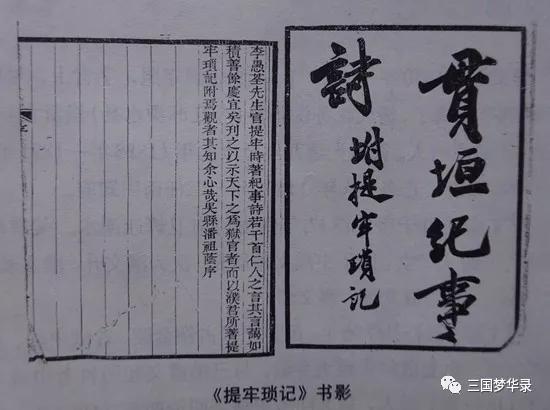 貫垣紀事
詩 坿提牢瑣記
李愚荃先生官提牢時著紀事詩若干首仁人之言其言藹如
積善餘慶宜矣刊之以示天下之為獄官者而以濮君所著提
牢瑣記附焉觀者其知余心哉吳縣潘祖蔭序
《提牢琐记》书影
三国梦华录